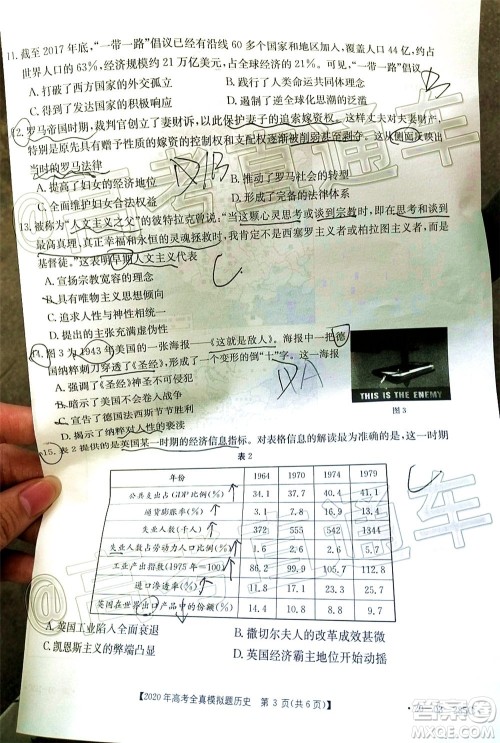 11. 截至 2017 年底,“一带一路”倡议已经有沿线 60 多个国家和地区加入,覆盖人口 44 亿,约占
世界人口的 63%,经济规模约 21 万亿美元,占全球 GDP 的 29%。可见,“一带一路”倡议
A. 打破了西方国家的外交孤立 B. 践行了人类命运共同体理念
C. 得到了发达国家的积极响应 D. 遏制了逆全球化思潮的泛滥
B
12. 罗马帝国时期,裁判官创立了妻财诉,以此保护妻子的追索嫁资权。这样丈夫对夫妻财产,
特别是原先具有赠予性质的嫁资的控制权和支配权逐渐被削弱甚至剥夺。这从侧面反映出
当时的罗马法律
A. 提高了妇女的经济地位 B. 扩大了夫妻共同财产
C. 全面维护妇女合法权益 D. 形成了完备的法律体系
D/B
13. 被称为“人文主义之父”的彼特拉克曾说:“当这颗心灵思考或谈到宗教时,即在思考和谈到
最高真理、真正幸福和永恒的灵魂拯救时,我肯定不是西塞罗主义者或柏拉图主义者,而是
基督徒。”这表明早期人文主义代表
A. 宣扬宗教宽容的理念
B. 具有唯物主义思想倾向
C. 追求人性与信仰的统一
D. 提出的主张充满虚伪性
C
14. 图 3 为 1943 年美国的一张海报——《这就是敌人》。海报中一把德
国纳粹刺刀穿透了《圣经》,形成了一个变形的倒“十”字。这一海报
A. 抨击了纳粹主义的残暴
B. 暗示美国不会卷入战争
C. 宣告了德国法西斯节节胜利
D. 揭示了纳粹对人性的亵渎
DA
THIS IS THE ENEMY
图 3
15. 表 2 提供的是英国某一时期的经济信息指标。对表格信息的解读最为准确的是,这一时期
C
表 2
年份 1964 1970 1974 1979
公共支出占 GDP 比例(%) 34.1 37.7 40.9 41.1
通货膨胀率(%) 3.1 7.8 16.9 13.4
失业人数(千人) 372 555 542 1344
失业人数占劳动力人口比例(%) 1.6 2.6 2.6 4.7
工业产出指数(1975 年=100) 86.2 99.9 105.7 113.1
进口渗透率(%) 11.8 17.1
英国在世界出口产品中的份额(%) 14.4 10.8 8.8 9.1
A. 英国工业陷入全面衰退 B. 撒切尔夫人的改革成效甚微
C. 凯恩斯主义的弊端凸显
【2020 年高考全真模拟题历史 第 3 页(共 6 页)】
高考直通车
高考直通车